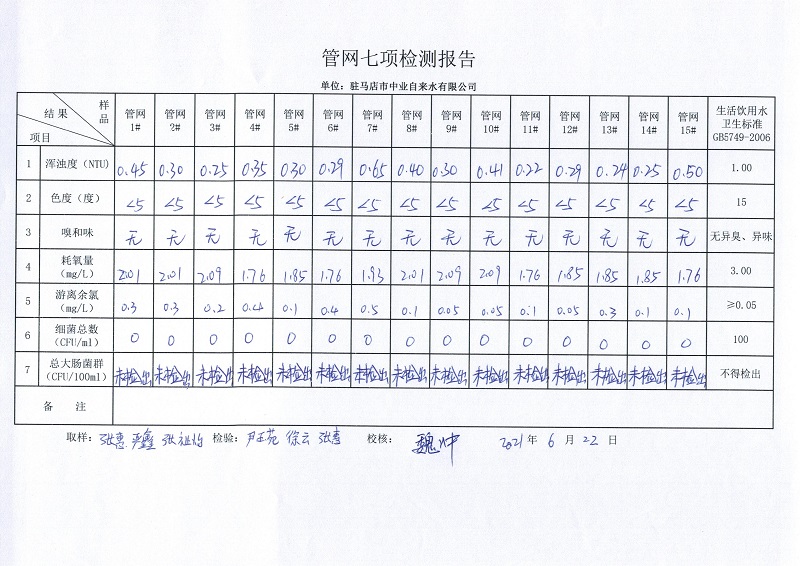 管网七项检测报告
单位：驻马店市中业自来水有限公司
结果 样品 项目 管网1# 管网2# 管网3# 管网4# 管网5# 管网6# 管网7# 管网8# 管网9# 管网10# 管网11# 管网12# 管网13# 管网14# 管网15# 生活饮用水卫生标准GB5749-2006
1 浑浊度（NTU） 0.45 0.30 0.25 0.35 0.30 0.29 0.65 0.40 0.30 0.41 0.22 0.29 0.24 0.25 0.50 1.00
2 色度（度） <5 <5 <5 <5 <5 <5 <5 <5 <5 <5 <5 <5 <5 <5 <5 15
3 嗅和味 无 无 无 无 无 无 无 无 无 无 无 无 无 无 无 无异臭、异味
4 耗氧量（mg/L） 2.01 2.01 2.09 1.76 1.85 1.76 1.93 2.01 2.09 2.09 1.76 1.85 1.85 1.85 1.76 3.00
5 游离余氯（mg/L） 0.3 0.3 0.2 0.4 0.1 0.4 0.5 0.1 0.05 0.05 0.1 0.05 0.3 0.1 0.1 ≥0.05
6 细菌总数（CFU/ml） 0 0 0 0 0 0 0 0 0 0 0 0 0 0 0 100
7 总大肠菌群（CFU/100ml） 未检出 未检出 未检出 未检出 未检出 未检出 未检出 未检出 未检出 未检出 未检出 未检出 未检出 未检出 未检出 不得检出
备 注
取样：张惠 张祖怡 检验：尹玉苑 徐云 张惠 校核：魏冲 2021年6月22日